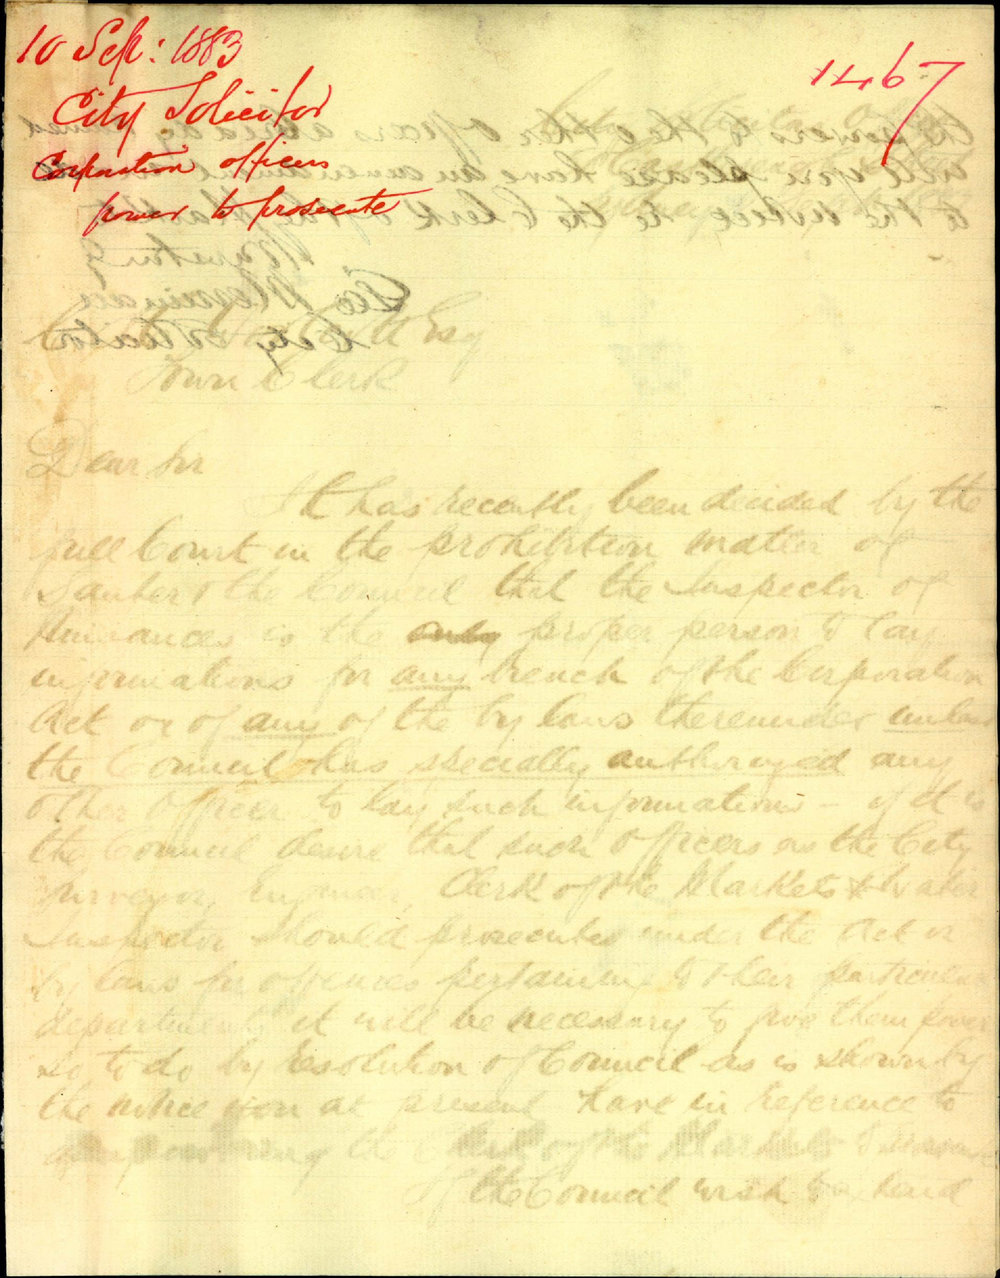 10 Sep: 1883
1467
City Solicitor
Corporation officers
power to prosecute
Esq
Town Clerk
Dear Sir
It has recently been decided by the
full Court in the prohibition matter of
& the Council that the Inspector of
Nuisances is the only proper person to lay
informations for any breach of the Corporation
Act or of any of the by laws thereunder unless
the Council has specially authorized any
other Officer to lay such informations - if it is
the Council desire that such Officers as the City
Surveyor, Engineer, Clerk of the Markets & Water
Inspector should prosecute under the Act or
by laws for offences pertaining to their particular
departments it will be necessary to give them power
so to do by resolution of Council as is shown by
the notice you at present have in reference to
empowering the Clerk of the Markets to
If the Council wish to extend